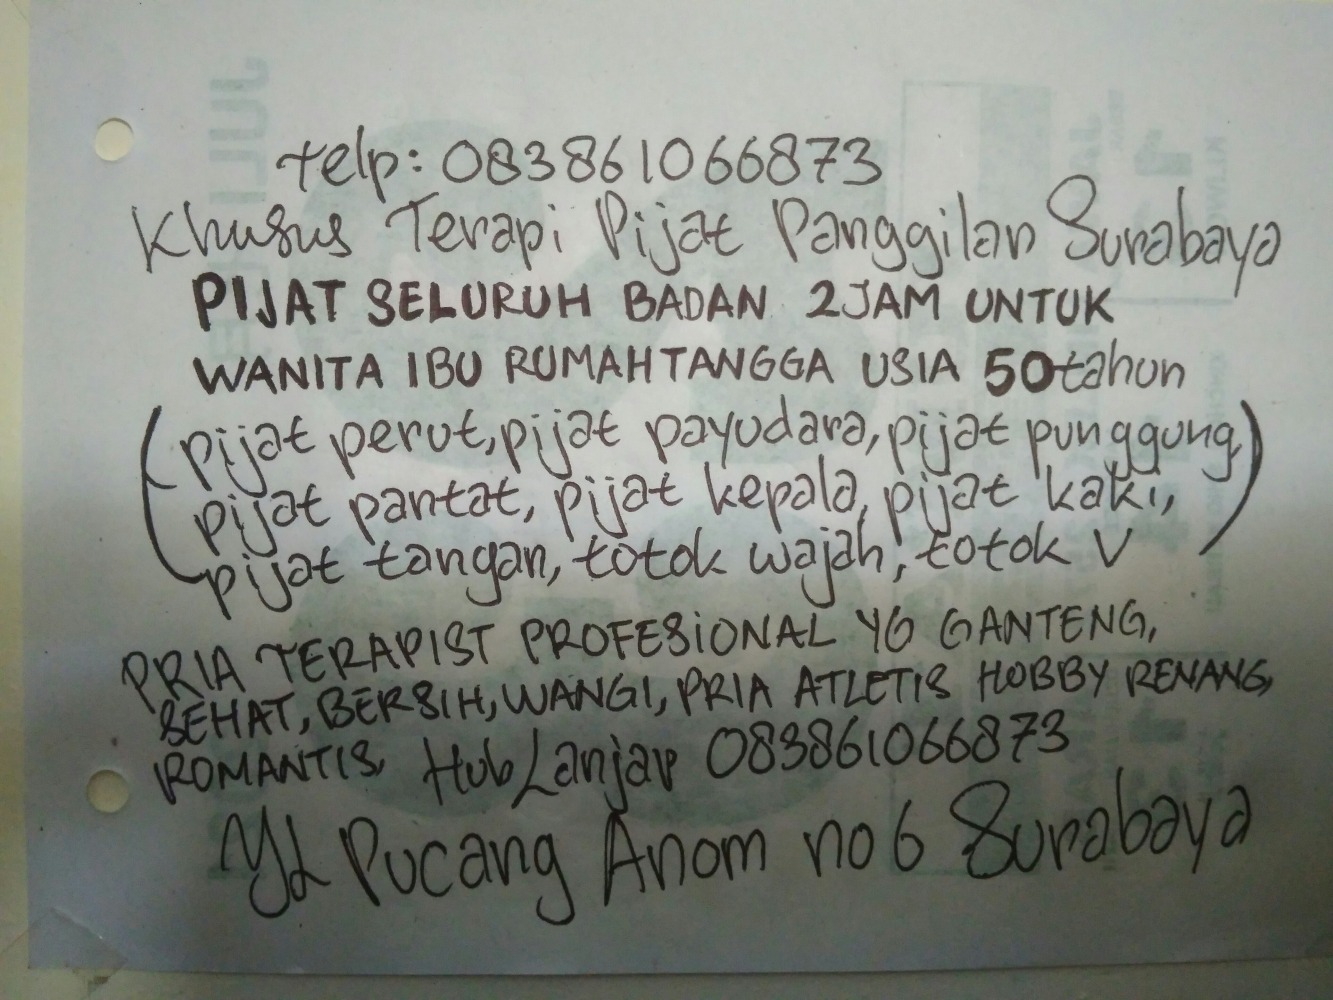 telp: 083861066873
Khusus Terapi Pijat Panggilan Surabaya
PIJAT SELURUH BADAN 2JAM UNTUK
WANITA IBU RUMAHTANGGA USIA 50tahun
(pijat perut, pijat payudara, pijat punggung,
pijat pantat, pijat kepala, pijat kaki,
pijat tangan, totok wajah, totok V)
PRIA TERAPIST PROFESIONAL YG GANTENG,
SEHAT, BERSIH, WANGI, PRIA ATLETIS HOBBY RENANG,
ROMANTIS, Hub Lanjar 083861066873
Pucang Anom no 6 Surabaya